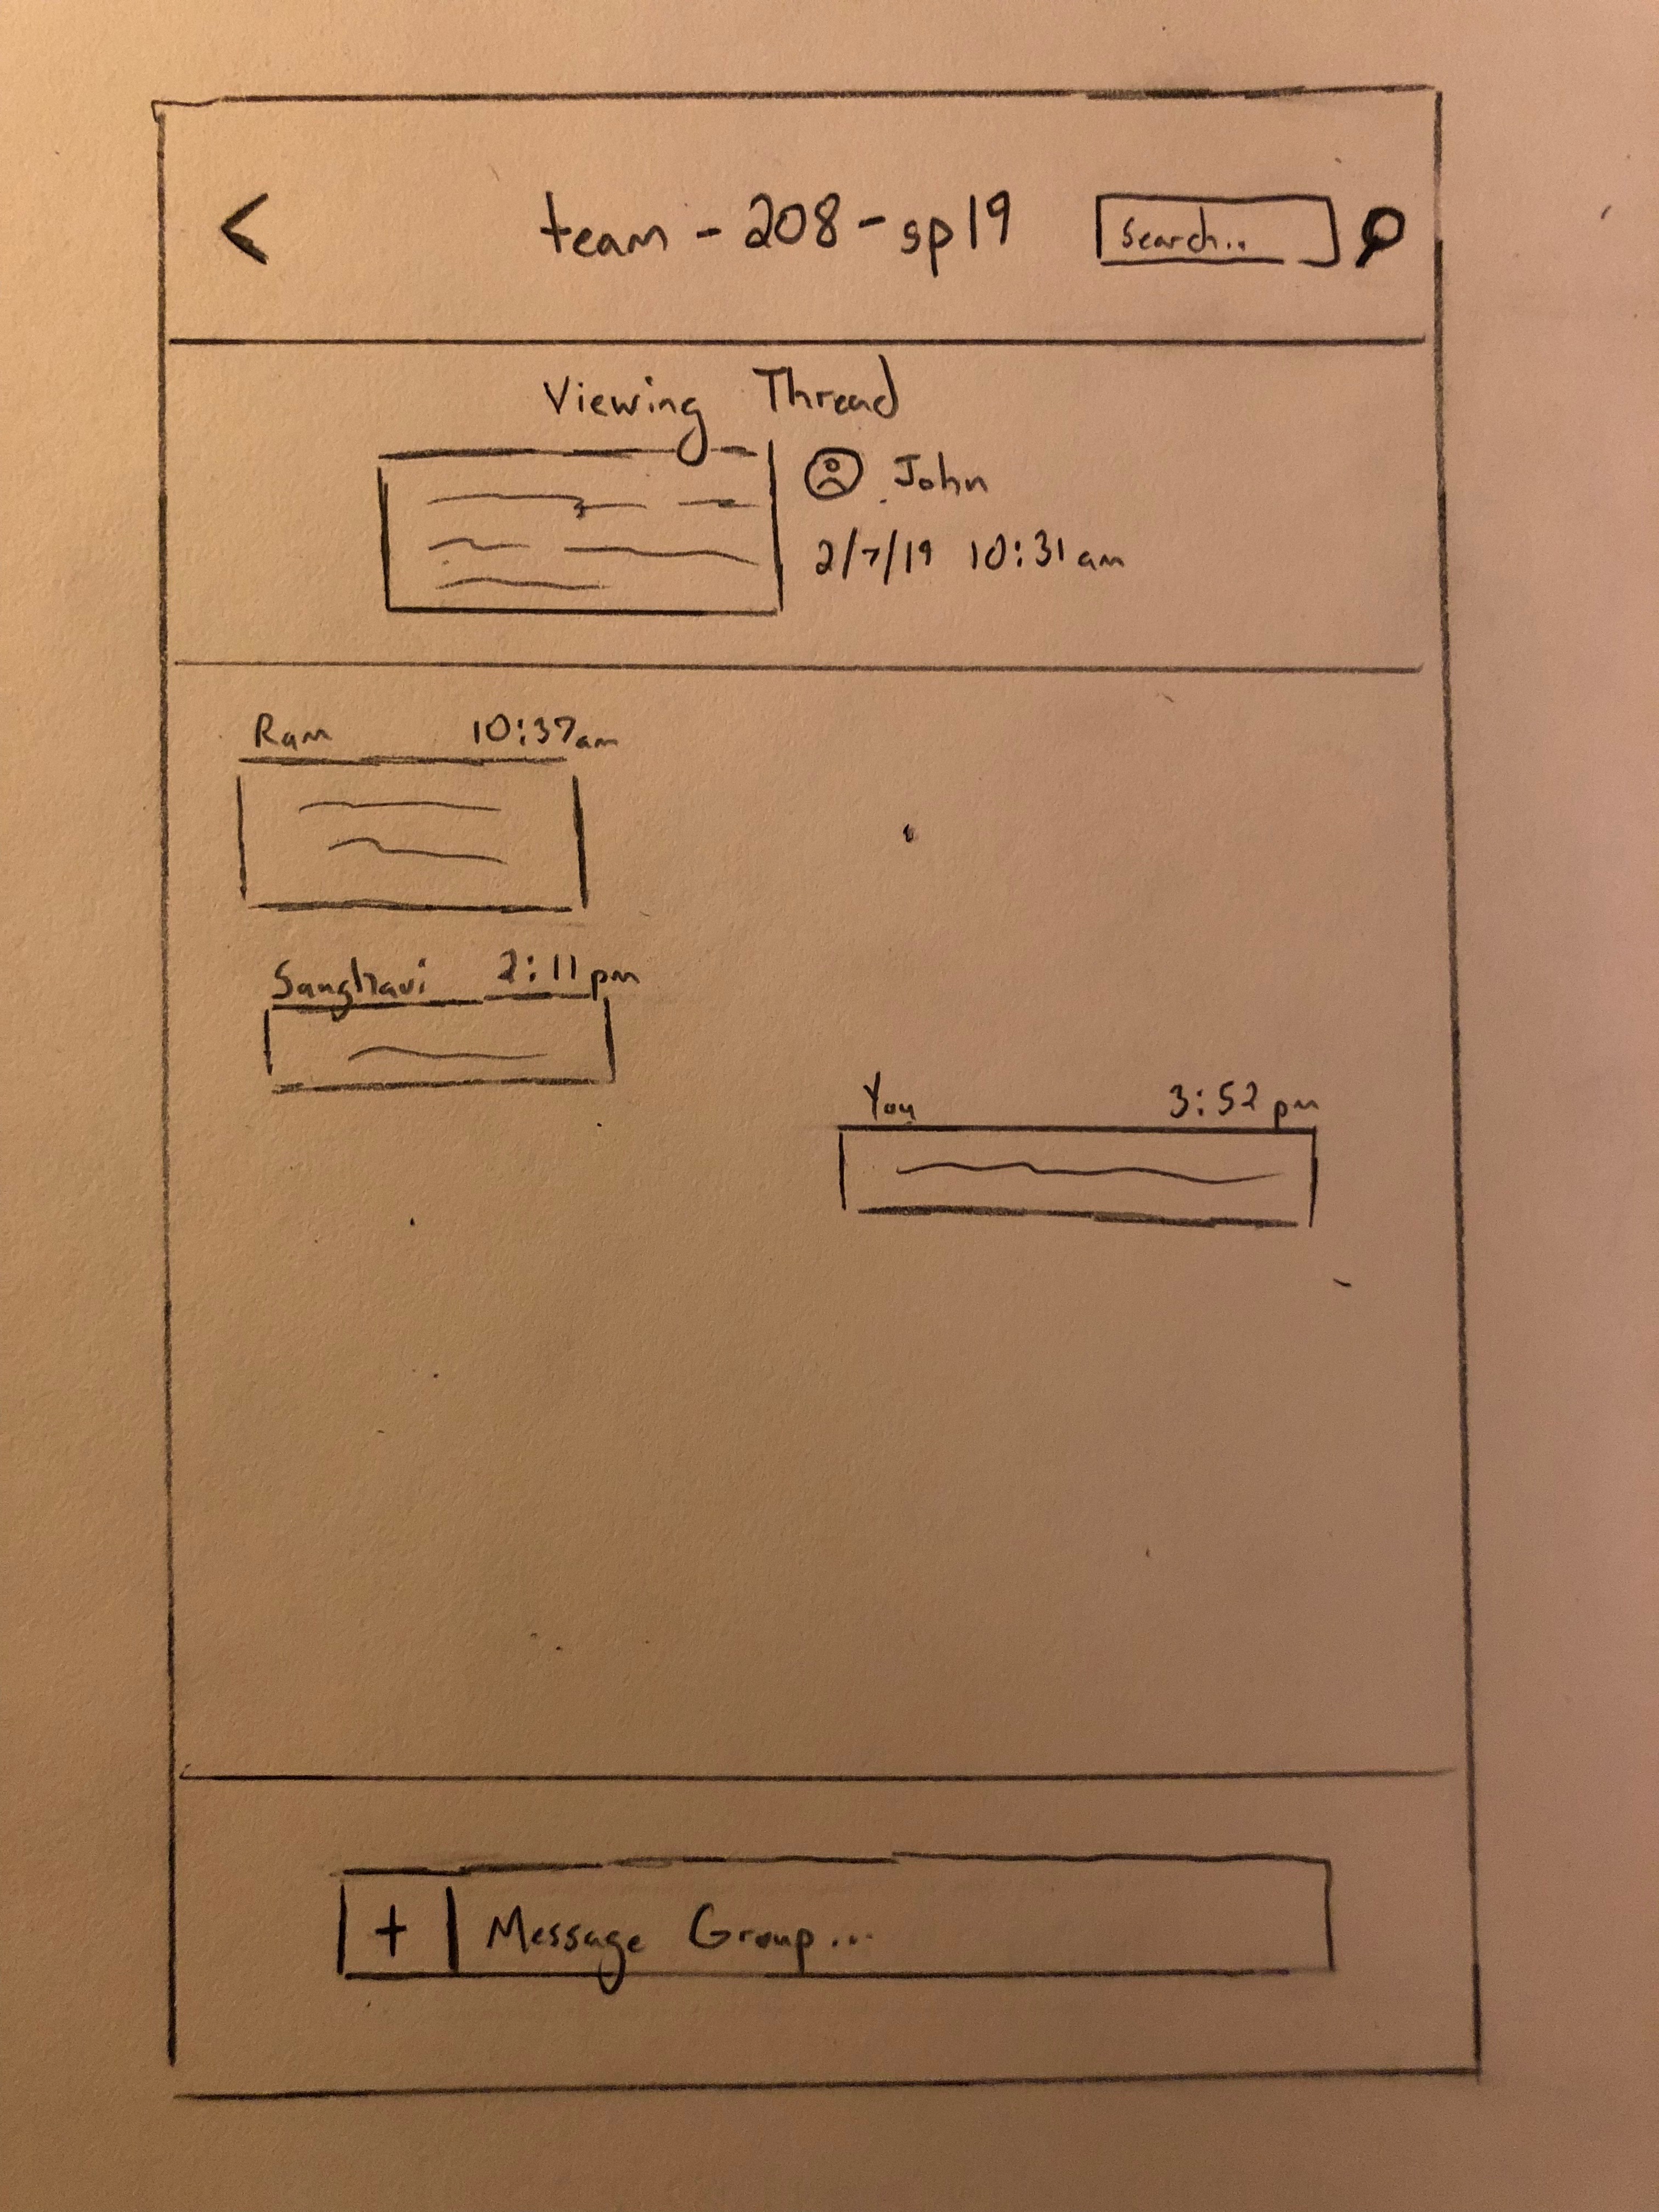 < team-208-sp19 Search..
Viewing Thread
John
2/7/19 10:31am
Ram 10:37am
Sanghavi 2:11pm
You 3:52pm
+ Message Group...